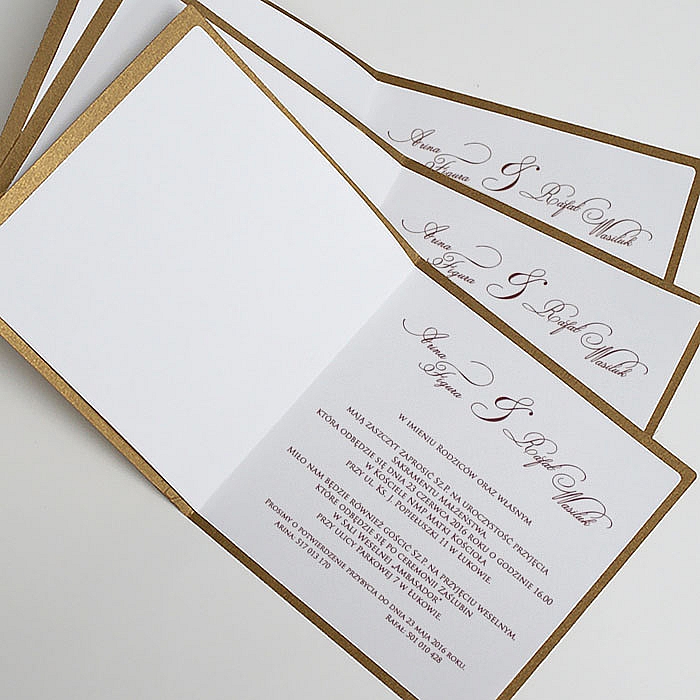 Arina
Figura
&
Rafał
Wasiluk
Arina
Figura
&
Rafał
Wasiluk
Arina
Figura
&
Rafał
Wasiluk
W IMIENIU RODZICÓW ORAZ WŁASNYM
MAJĄ ZASZCZYT ZAPROSIĆ SZ.P. NA UROCZYSTOŚĆ PRZYJĘCIA
SAKRAMENTU MAŁŻEŃSTWA,
KTÓRA ODBĘDZIE SIĘ DNIA 23 CZERWCA 2016 ROKU O GODZINIE 16:00
W KOŚCIELE NMP MATKI KOŚCIOŁA
PRZY UL. KS. J. POPIEŁUSZKI 11 W ŁUKOWIE.
MIŁO NAM BĘDZIE RÓWNIEŻ GOŚCIĆ SZ.P. NA PRZYJĘCIU WESELNYM,
KTÓRE ODBĘDZIE SIĘ PO CEREMONII ZAŚLUBIN
W SALI WESELNEJ „AMBASADOR"
PRZY ULICY PARKOWEJ 7 W ŁUKOWIE.
PROSIMY O POTWIERDZENIE PRZYBYCIA DO DNIA 23 MAJA 2016 ROKU.
ARINA: 517 013 170 RAFAŁ: 501 010 428